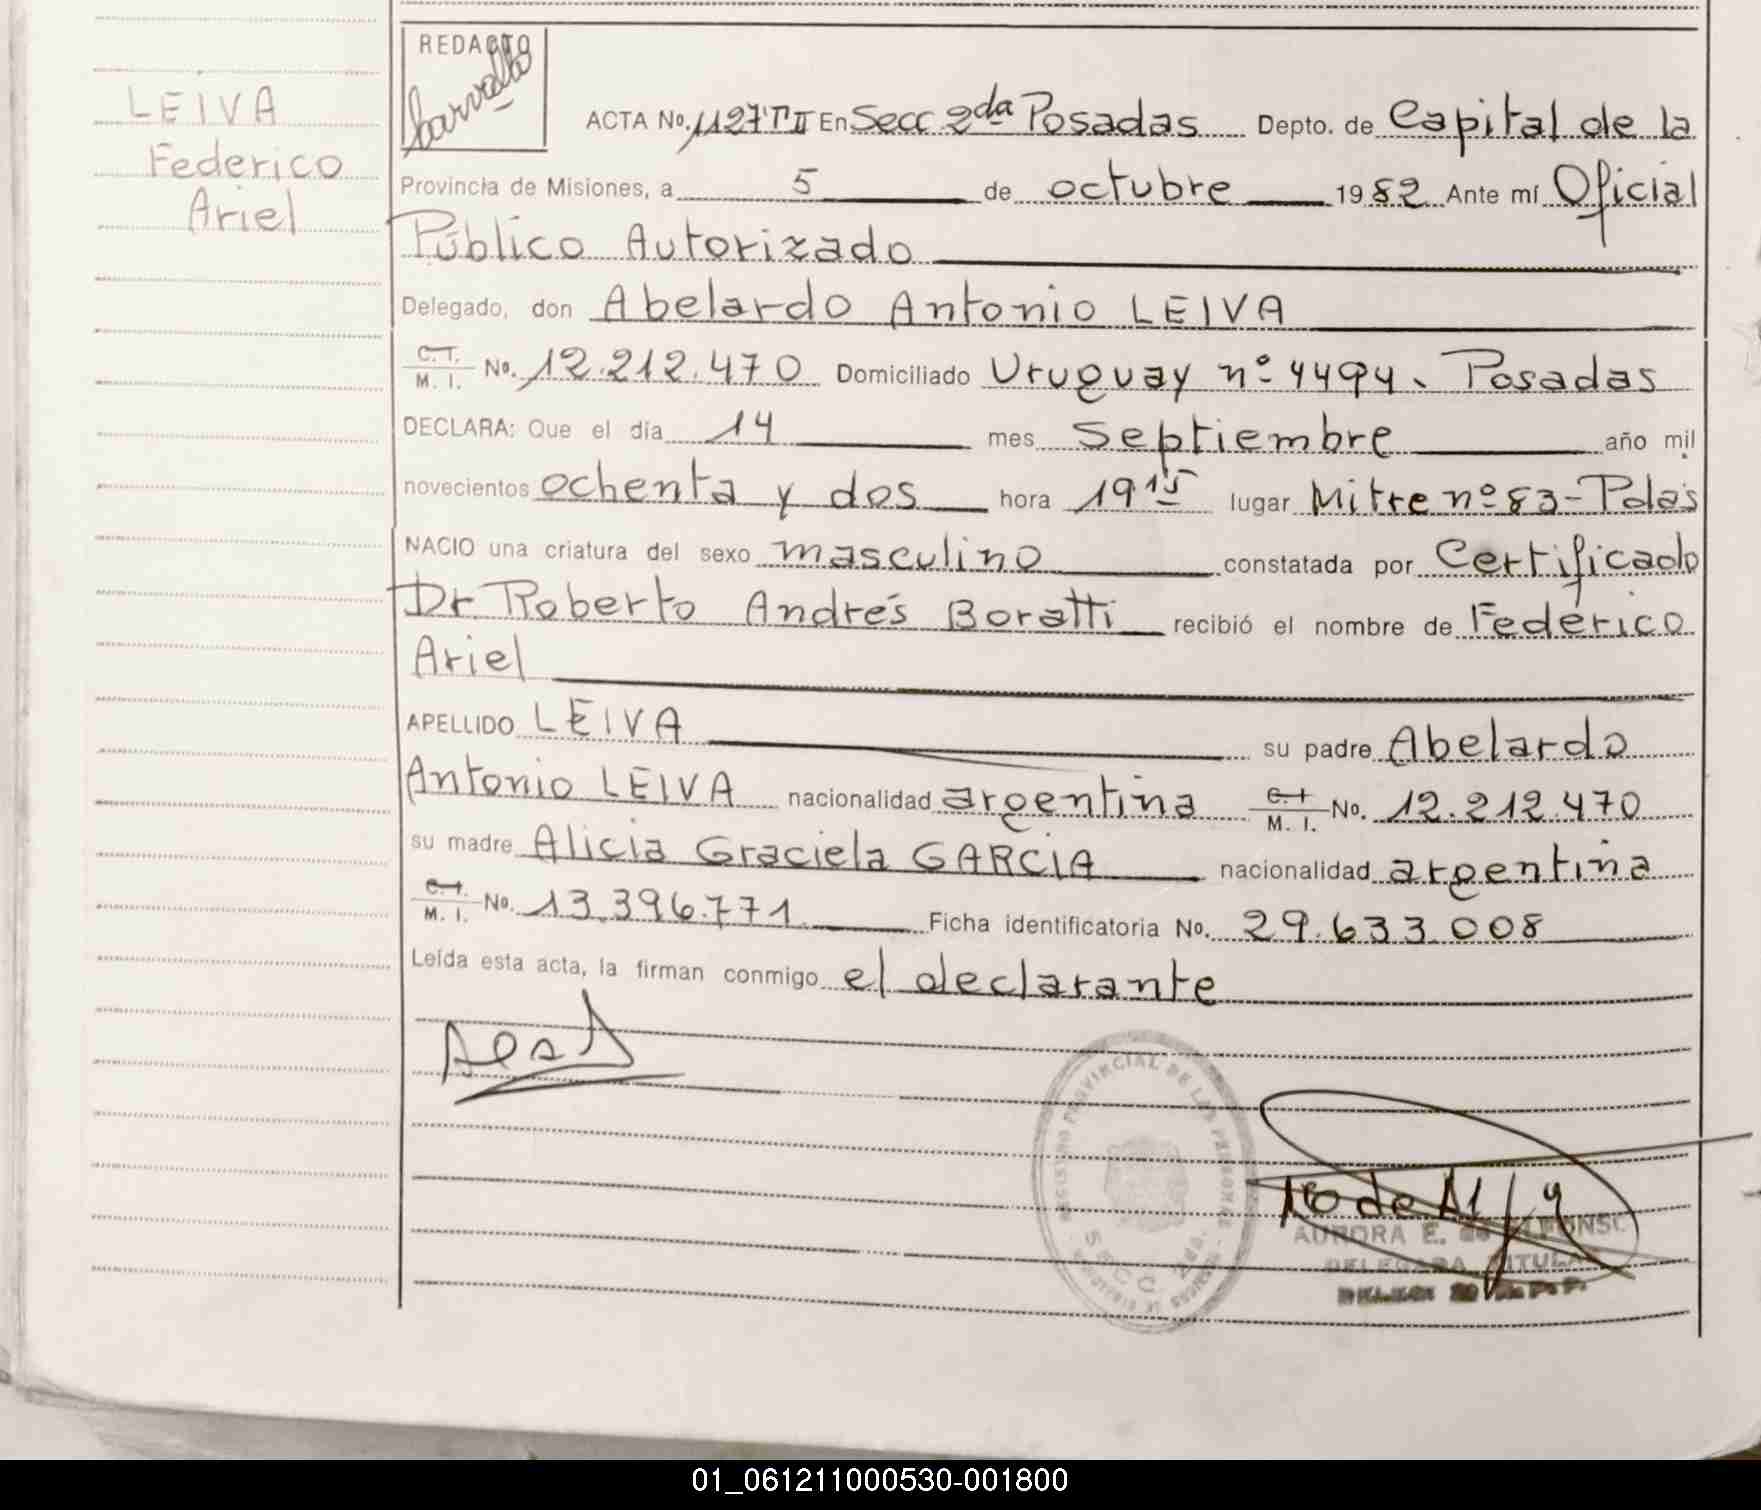 LEIVA
Federico
Ariel
REDACTO
ACTA No. 1127 T II En Secc. 2da Posadas Depto. de Capital de la
Provincia de Misiones, a 5 de octubre 1982 Ante mí Oficial
Público Autorizado
Delegado, don Abelardo Antonio LEIVA
C.I. M. I. No. 12.212.470 Domiciliado Uruguay nº 4494. Posadas
DECLARA: Que el día 14 mes septiembre año mil
novecientos ochenta y dos hora 19 15 lugar Mitre nº 83-Pdas
NACIO una criatura del sexo masculino constatada por Certificado
Dr. Roberto Andrés Boratti recibió el nombre de Federico
Ariel
APELLIDO LEIVA su padre Abelardo
Antonio LEIVA nacionalidad argentina C.I. M. I. No. 12.212.470
su madre Alicia Graciela GARCIA nacionalidad argentina
C.I. M. I. No. 13.396.771 Ficha identificatoria No. 29.633.008
Leída esta acta, la firman conmigo el declarante
REGISTRO PROVINCIAL DE LAS PERSONAS
SECC. 2da.
AURORA E.
DELEGADA TITULAR
01_061211000530-001800